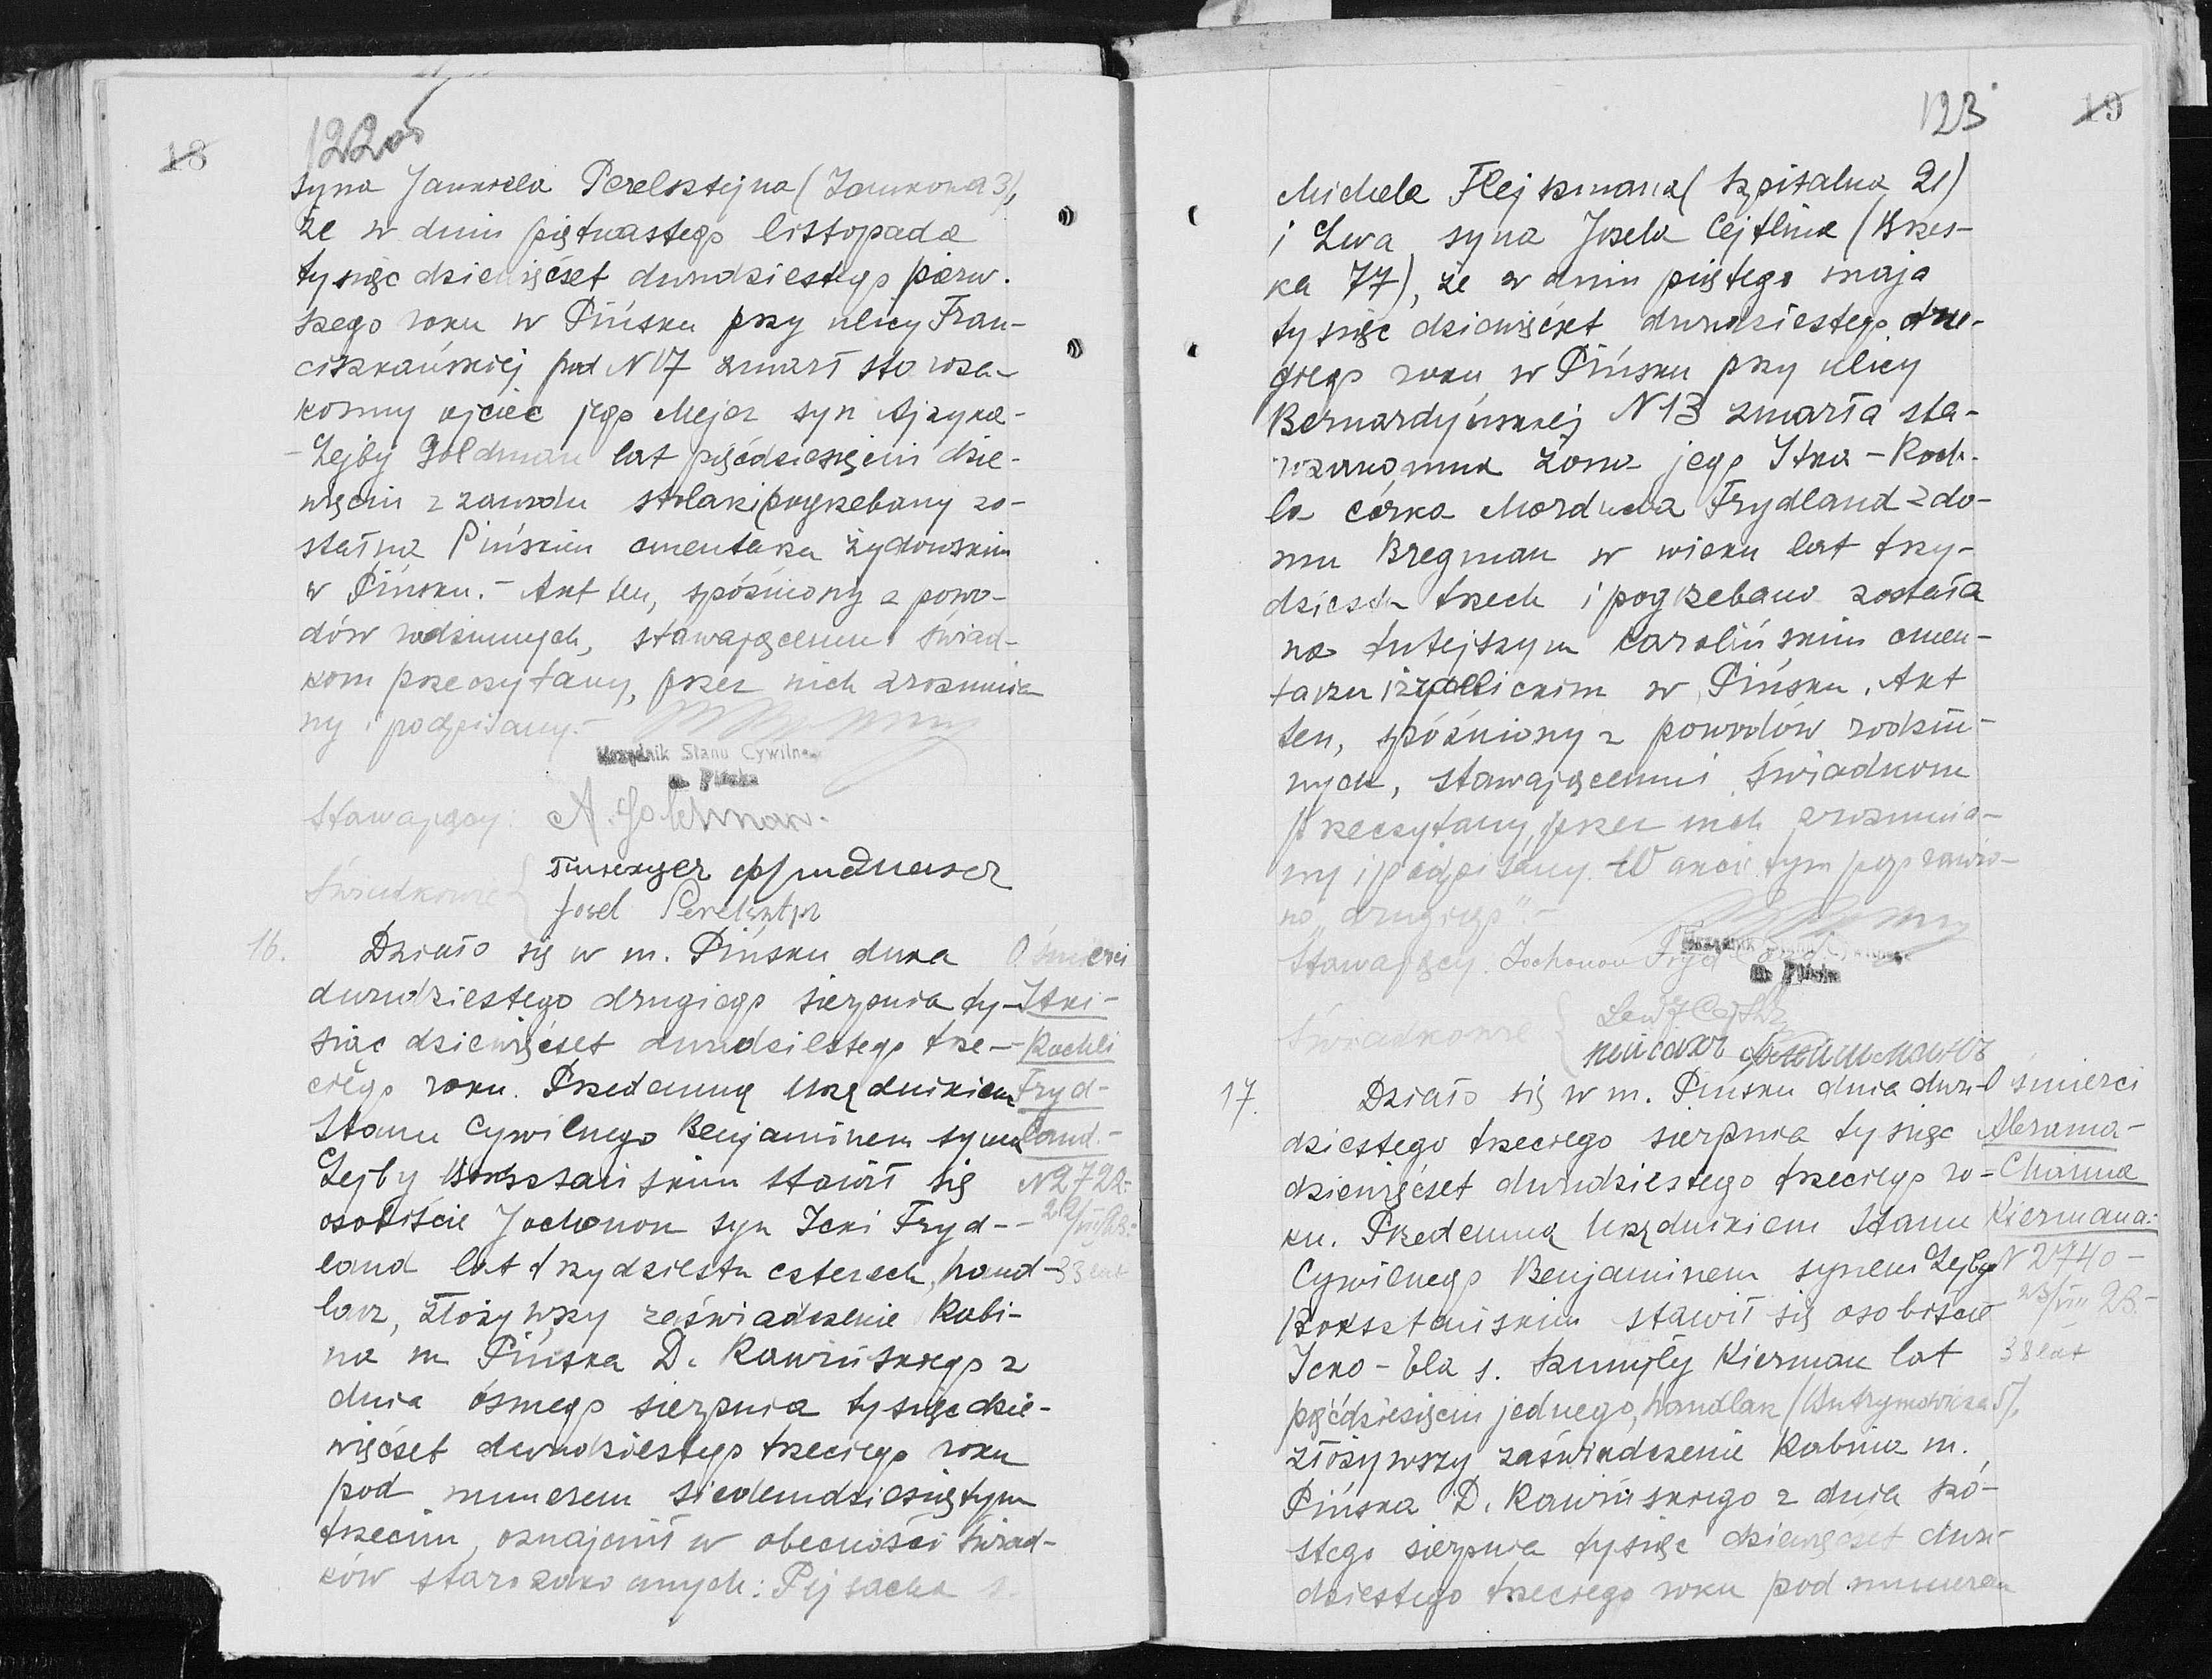 18
122
syna Jankiela Perelsztejna (Zamkowa 3),
że w dniu piętnastego listopada
tysiąc dziewięćset dwudziestego pierw-
szego roku w Pińsku przy ulicy Fran-
ciszkańskiej pod N 17 zmarł staroza-
konny ojciec jego Mejer syn Ajzyka-
-Lejby Goldman lat pięćdziesięciu dzie-
więciu z zawodu stolarz i pogrzebany zo-
stał na Pińskim cmentarzu żydowskim
w Pińsku.- Akt ten, spóźniony z powo-
dów rodzinnych, stawającemu i świad-
kom przeczytany, przez nich zrozumia-
ny i podpisany.-
Urzędnik Stanu Cywilnego
m. Pińska
Stawający: A. Goldman.
Świadkowie
Josel Perelsztejn
16. Działo się w m. Pińsku dnia
dwudziestego drugiego sierpnia ty-
siąc dziewięćset dwudziestego trze-
ciego roku. Przedemną Urzędnikiem
Stanu Cywilnego Benjaminem synem
Lejby Boksztańskim stawił się
osobiście Jochonon syn Icki Fryd-
land lat trzydziestu czterech, hand-
larz, złożywszy zaświadczenie Rabi-
na m Pińska D. Rawińskiego z
dnia ósmego sierpnia tysiąc dzie-
więćset dwudziestego trzeciego roku
pod numerem siedemdziesiętym
trzecim, oznajmił w obecności świad-
ków starozakonnych: Pejsacha s.
O śmierci
Itki-
Rochli
Fryd-
land.-
N 2722.-
22/VIII 23.-
33 lat
123
19
Michela Flejszmana (Szpitalna 21)
i Lwa syna Josela Cejtlina (Brzes-
ka 77), że w dniu piętego maja
tysiąc dziewięćset dwudziestego dru-
giego roku w Pińsku przy ulicy
Bernardyńskiej N 13 zmarła sta-
rozakonna żona jego Itka-Roch-
la córka Morducha Frydland z do-
mu Bregman w wieku lat trzy-
dziestu trzech i pogrzebana została
na tutejszym Karolińskim cmen-
tarzu w Pińsku. Akt
ten, spóźniony z powodów rodzin-
nych, stawającemu i świadkom
przeczytany, przez nich zrozumia-
ny i podpisany. W akcie tym poprawio-
no "drugiego".-
Urzędnik Stanu Cywilnego
m. Pińska
Stawający: Jochonon Frydland
Świadkowie
17. Działo się w m. Pińsku dnia dwu-
dziestego trzeciego sierpnia tysiąc
dziewięćset dwudziestego trzeciego ro-
ku. Przedemną Urzędnikiem Stanu
Cywilnego Benjaminem synem Lejby
Boksztańskim stawił się osobiście
Icko-Ela s. Szmujły Kierman lat
pięćdziesięciu jednego, handlarz (Butrymowicza 5),
złożywszy zaświadczenie Rabina m.
Pińska D. Rawińskiego z dnia szó-
stego sierpnia tysiąc dziewięćset dwu-
dziestego trzeciego roku pod numerem
O śmierci
Abrama-
Chaima
Kiermana.-
N 2740-
23/VIII 23.-
38 lat